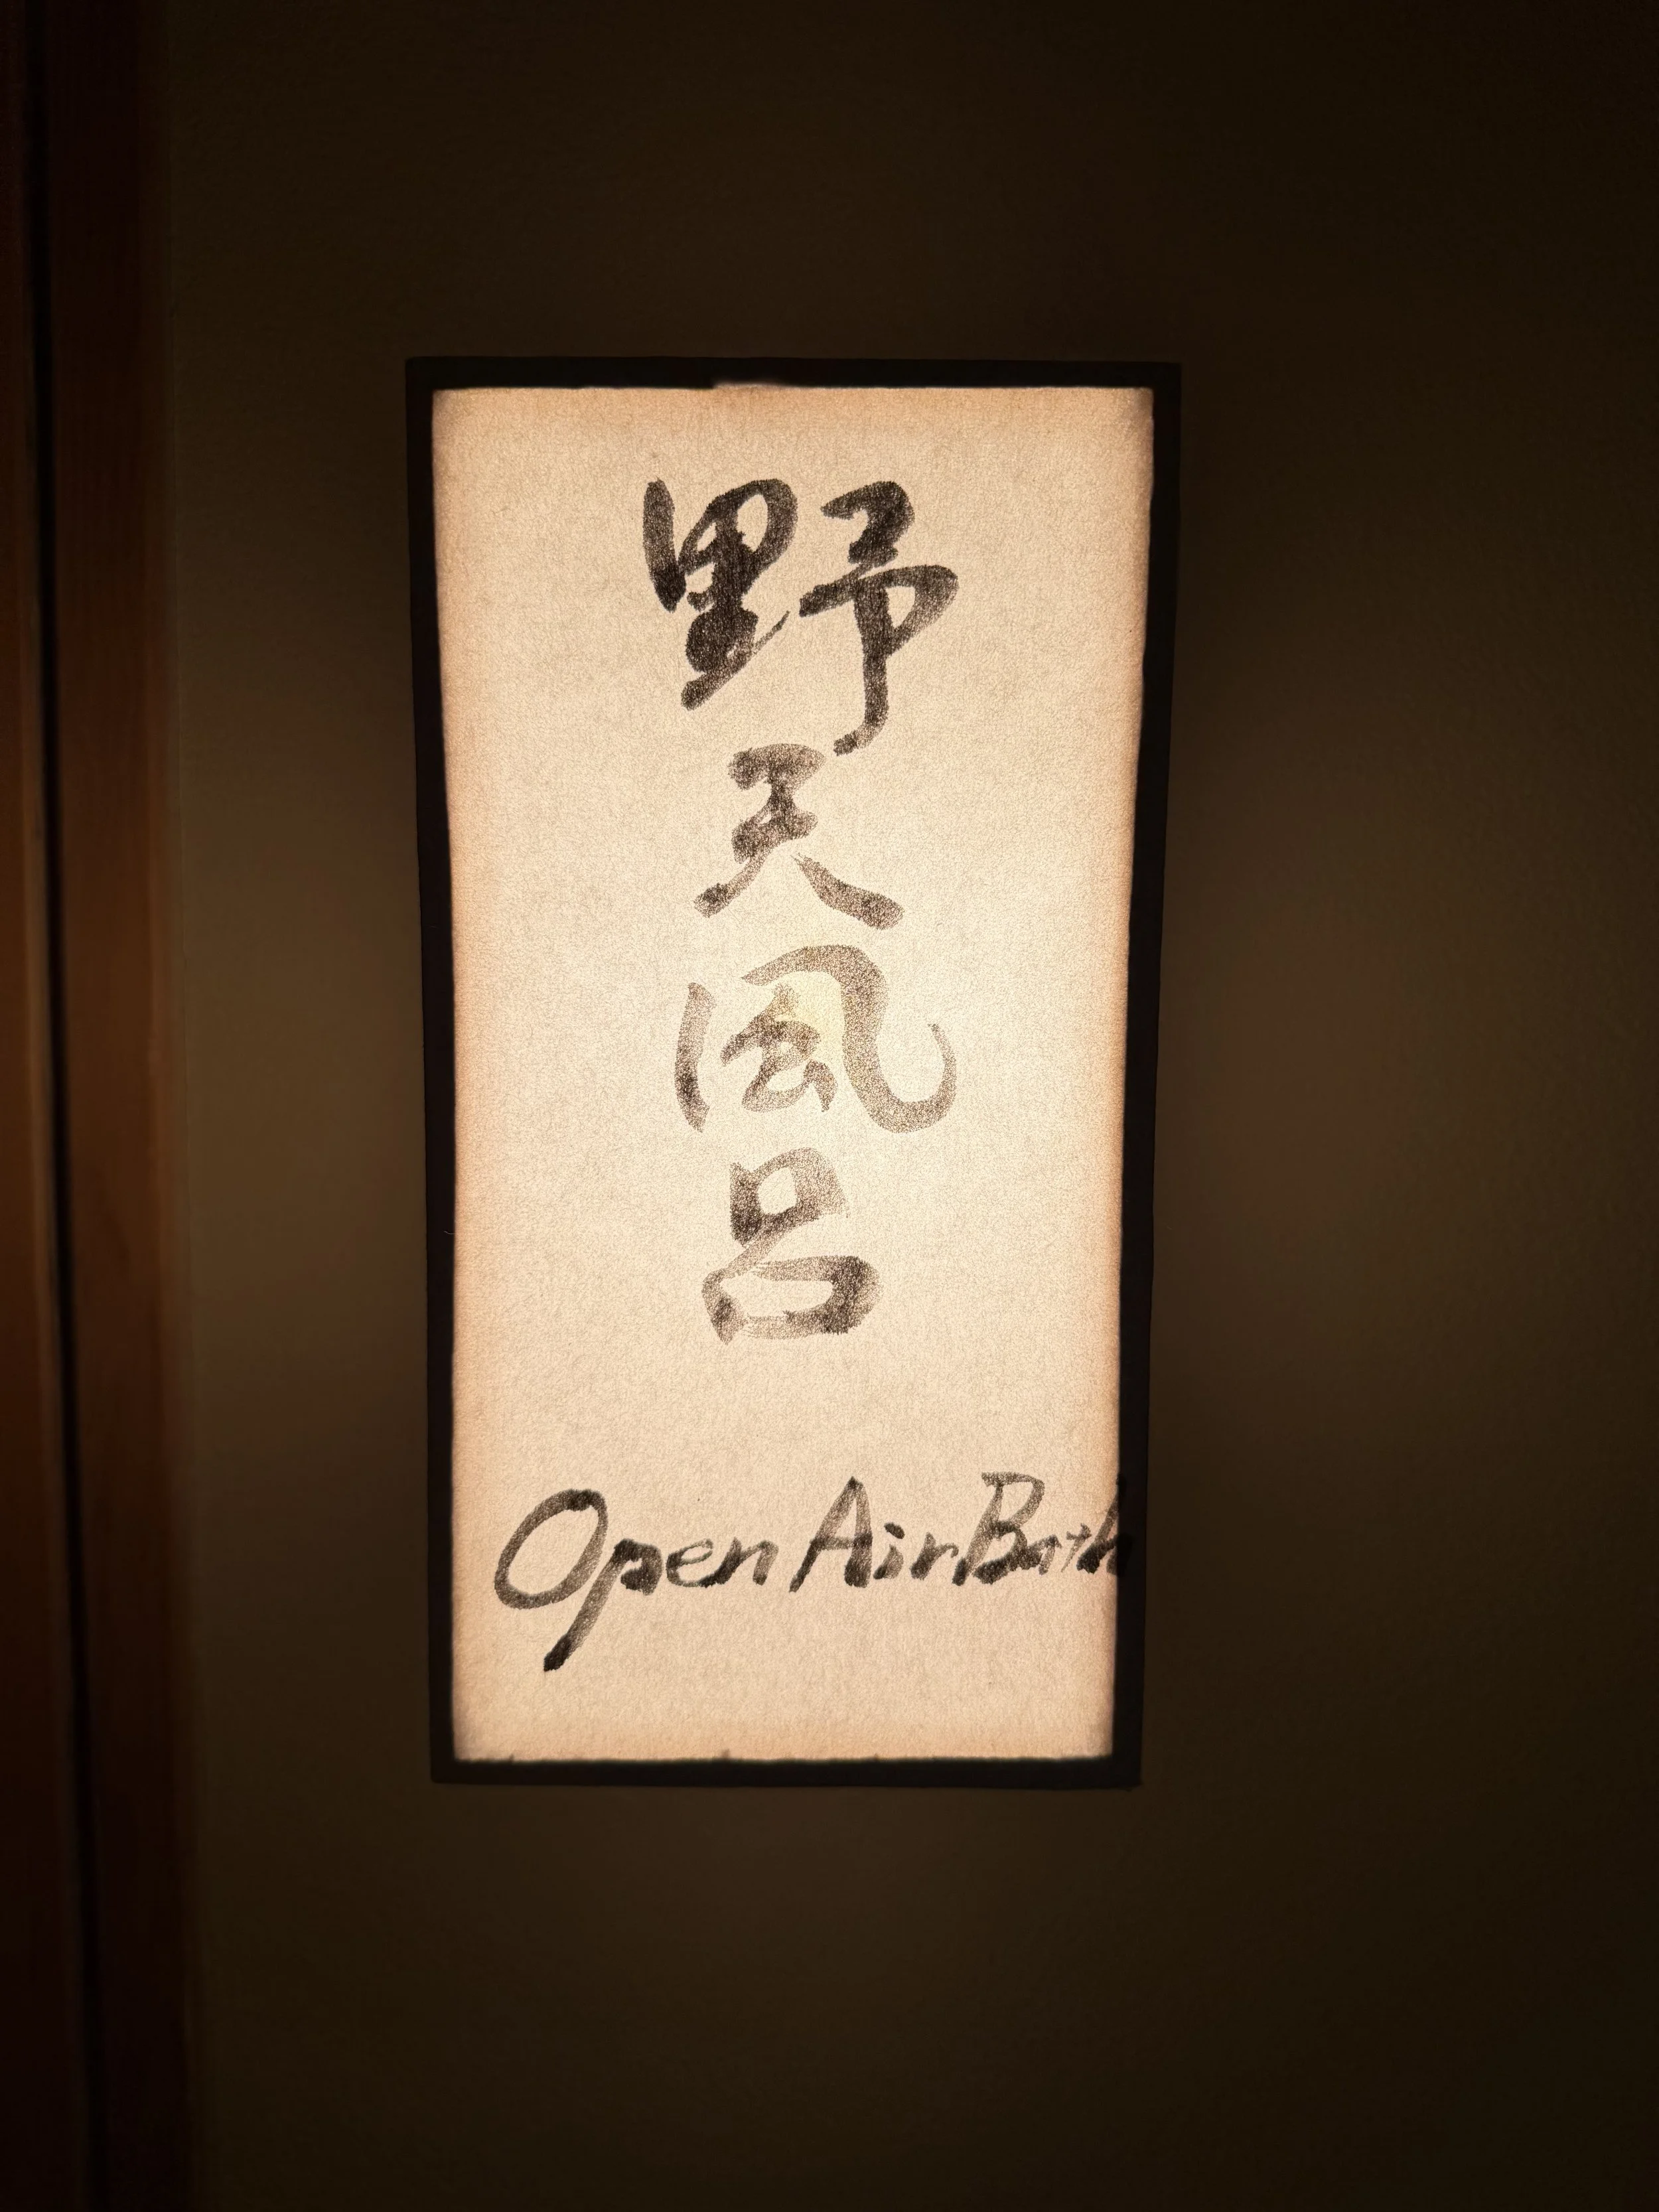 野天風呂
Open Air Bath